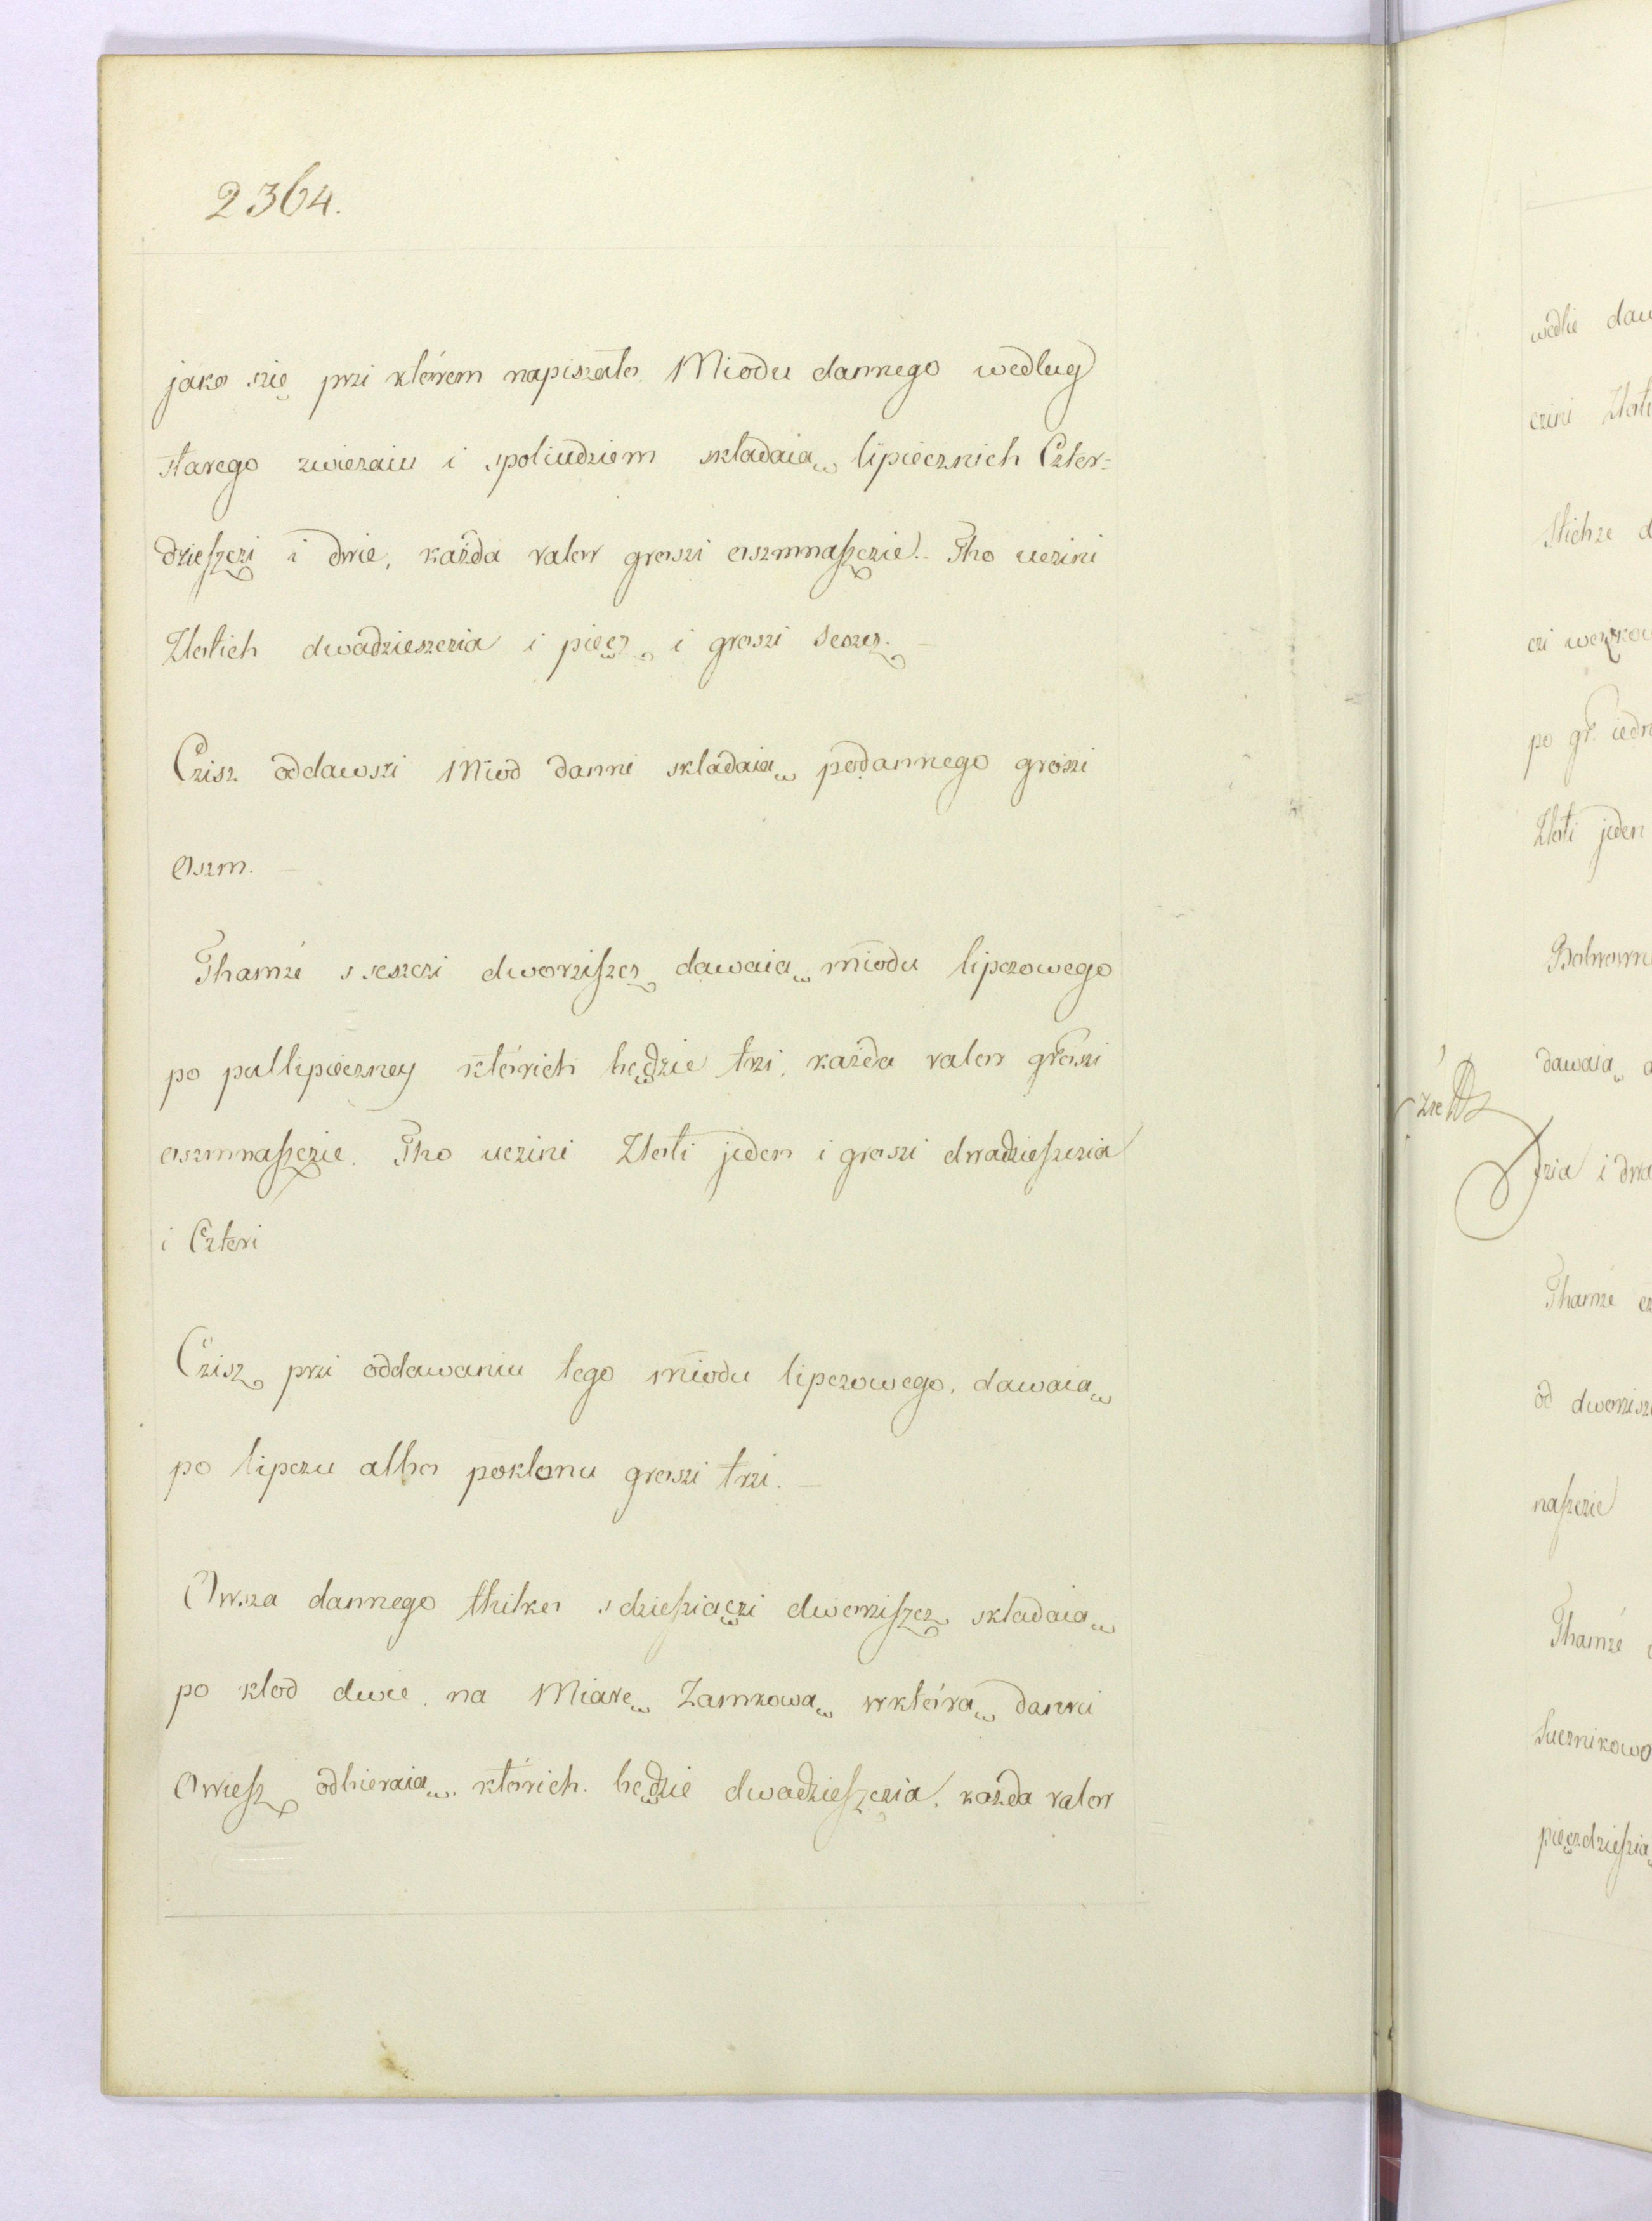 2364.
jako szię przi którem napiszało. Miodu dannego według
starego zwiczaiu i spoliudziem składaią lipiecznich Czter=
dzieszczi i dwie, każda valor groszi oszmnaszczie. Tho uczini
Złotich dwadzieszczia i pięcz i groszi seszcz. —
Czisz oddawszi Miod danni składaią podannego groszi
oszm. —
Thamże s seszczi dworziszcz dawaią miodu lipczowego
po pullipieczney których będzie trzi, każda valor groszi
oszmnaszczie. Tho uczini Złoti jeden i groszi dwadzieszczia
i Czteri
Czisz przi oddawaniu tego miodu lipczowego, dawaią
po lipczu albo pokłonu groszi trzi. —
Owsza dannego thilko s dziesziączi dworziszcz składaią
po kłod dwie. na Miarę Zamkową wktórą danni
Owiesz odbieraią. których. będzie dwadzieszczia. każda valor
wedle
czini
po gr.
Złoti jeden
dawaią
dzia i dwa
Thamże
od
naszczie
Thamże